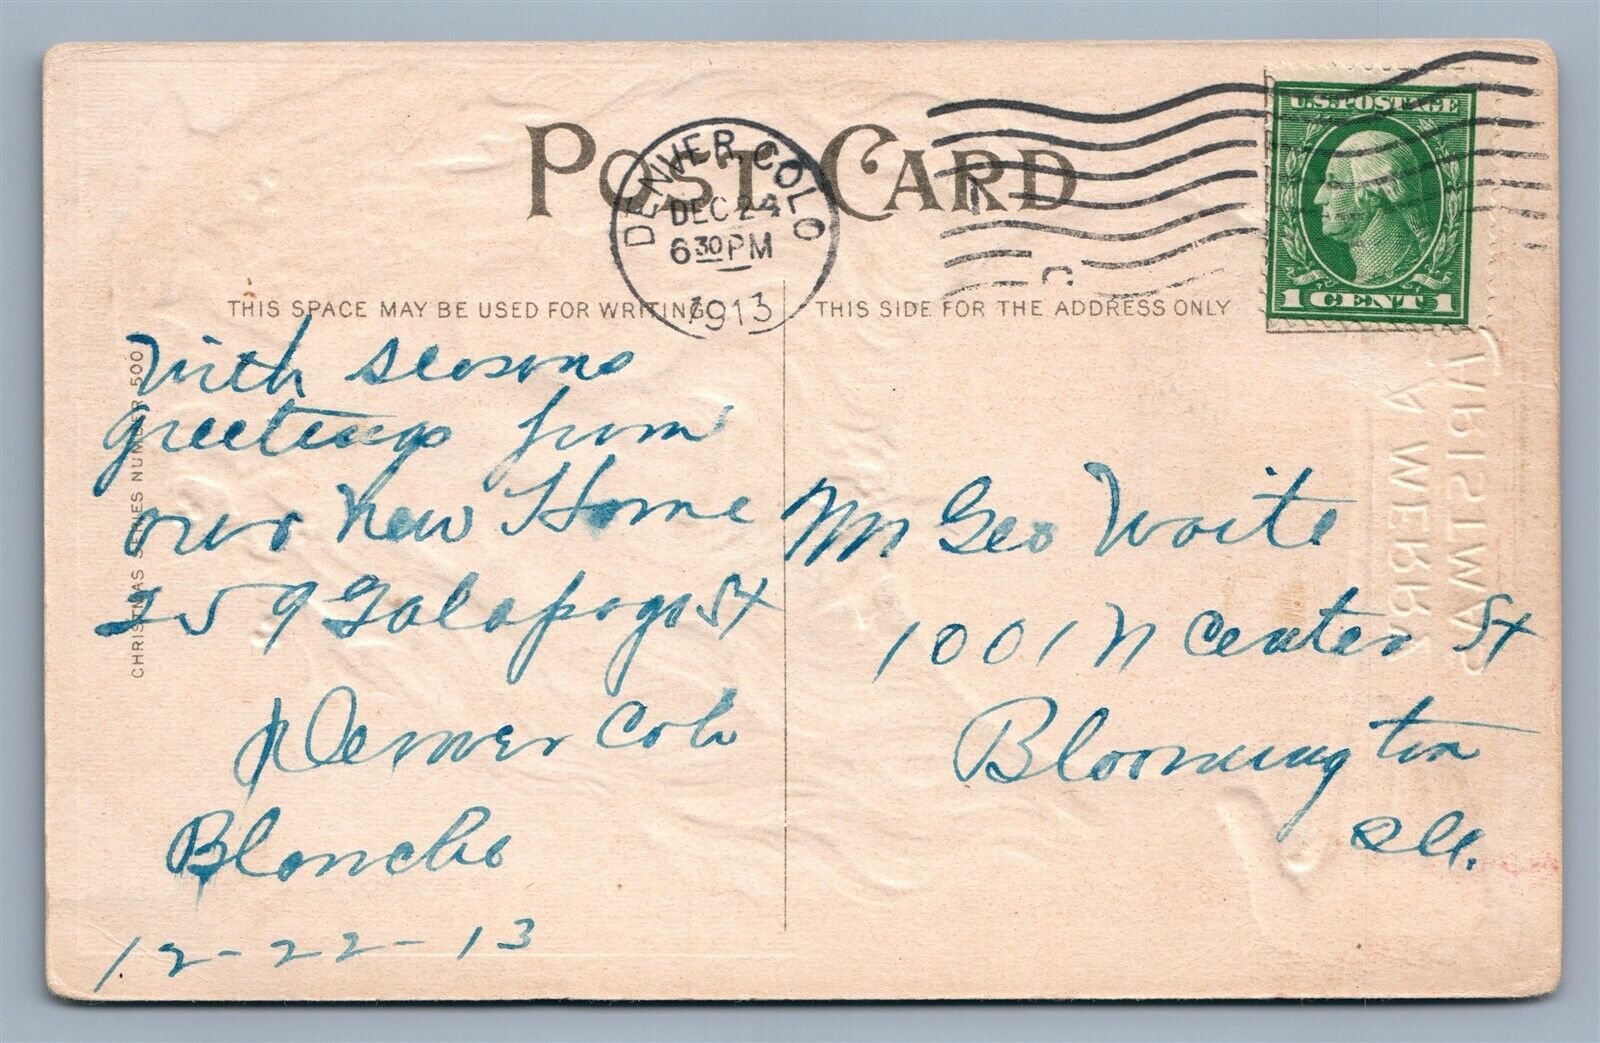 POST CARD
DENVER, COLO
DEC 24
6 30 PM
1913
U.S. POSTAGE
1 CENT 1
THIS SPACE MAY BE USED FOR WRITING
THIS SIDE FOR THE ADDRESS ONLY
CHRISTMAS SERIES NUMBER 500
With seasons
greetings from
our New Home
259 Galapago St
Denver Colo
Blanche
12-22-13
Mr Geo Waite
1001 N Center St
Bloomington
Ill.
A MERRY
CHRISTMAS